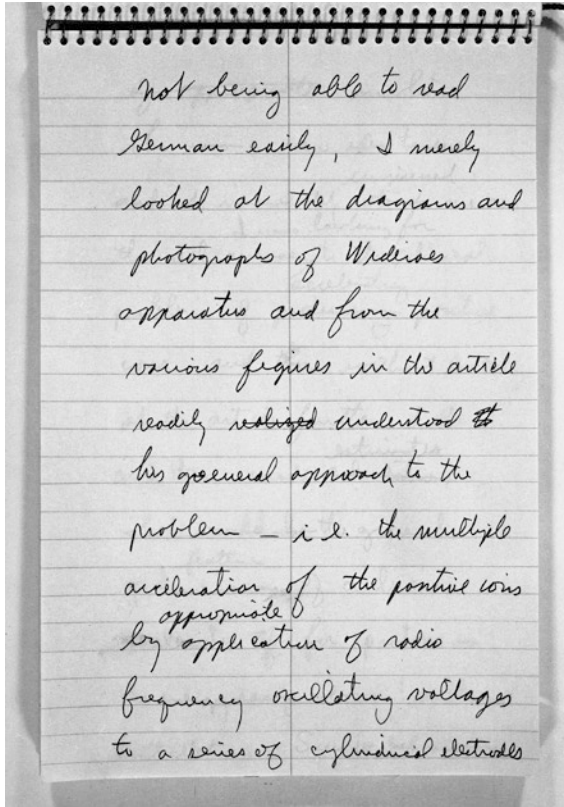 not being able to read
German easily, I merely
looked at the diagrams and
photographs of Wideroes
apparatus and from the
various figures in the article
readily realized understood
his general approach to the
problem — i.e. the multiple
acceleration of the positive ions
appropriate
by application of radio
frequency oscillating voltages
to a series of cylindrical electrodes